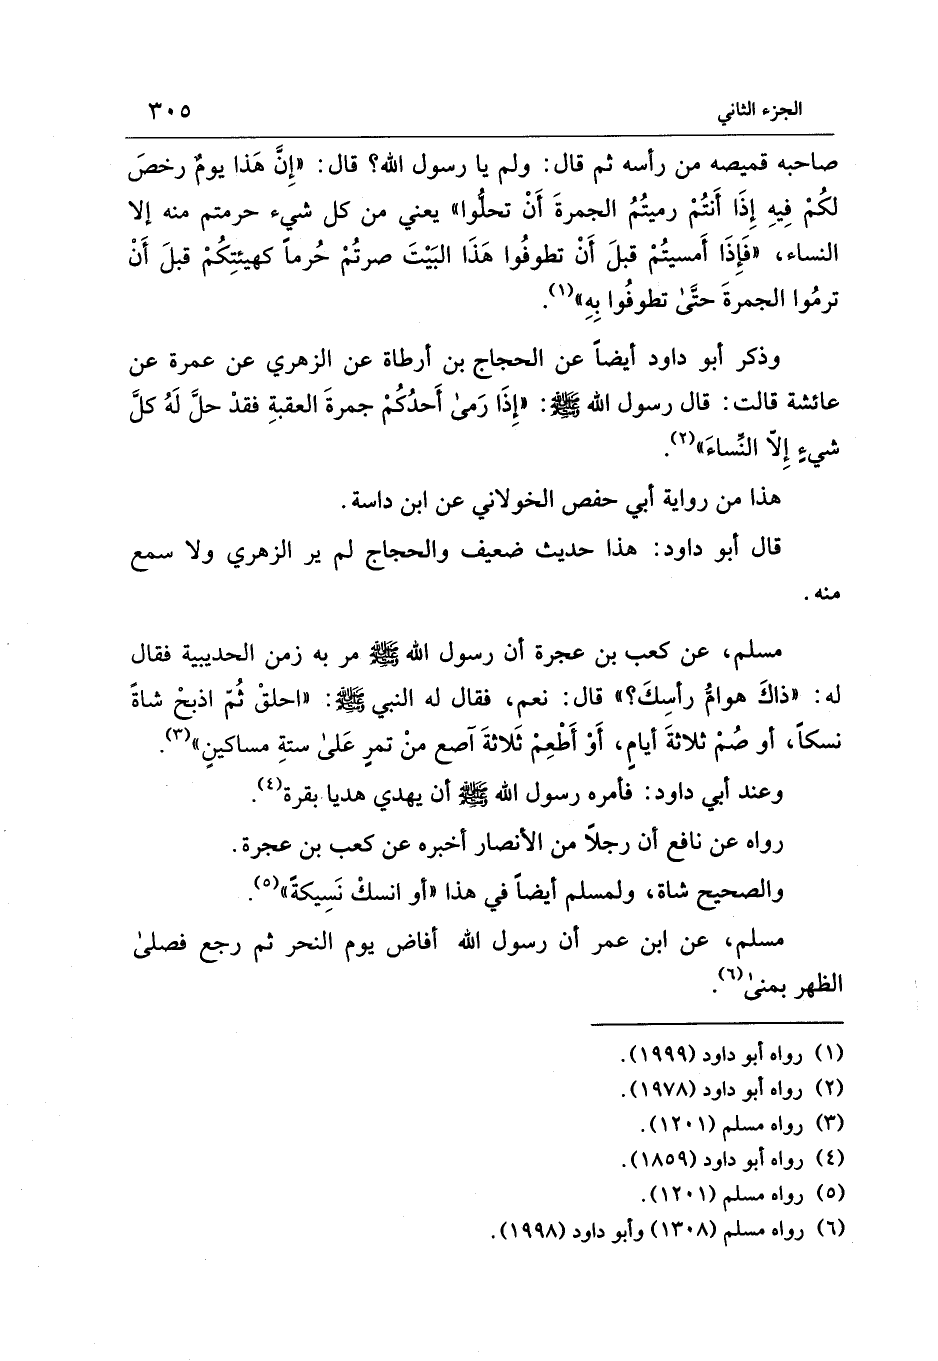 الجزء الثاني ٣٠٥
صاحبه قميصه من رأسه ثم قال: ولم يا رسول الله؟ قال: «إِنَّ هَذا يومٌ رخصَ
لكُمْ فِيهِ إِذَا أَنتُمْ رميتُمُ الجمرةَ أَنْ تحلُّوا» يعني من كل شيء حرمتم منه إلا
النساء، «فَإِذَا أَمسيتُمْ قبلَ أَنْ تطوفُوا هَذَا البَيْتَ صرتُمْ حُرماً كهيئتِكُمْ قبلَ أَنْ
ترمُوا الجمرةَ حتَّىٰ تطوفُوا بِهِ»(١).
وذكر أبو داود أيضاً عن الحجاج بن أرطاة عن الزهري عن عمرة عن
عائشة قالت: قال رسول الله ﷺ: «إِذَا رَمىٰ أَحدُكُمْ جمرةَ العقبةِ فقدْ حلَّ لَهُ كلَّ
شيءٍ إِلاّ النِّساءَ»(٢).
هذا من رواية أبي حفص الخولاني عن ابن داسة.
قال أبو داود: هذا حديث ضعيف والحجاج لم ير الزهري ولا سمع
منه.
مسلم، عن كعب بن عجرة أن رسول الله ﷺ مر به زمن الحديبية فقال
له: «ذاكَ هوامُّ رأسِكَ؟» قال: نعم، فقال له النبي ﷺ: «احلقْ ثُمّ اذبحْ شاةً
نسكاً، أو صُمْ ثلاثةَ أيامٍ، أَوْ أَطْعِمْ ثَلاثةَ آصع منْ تمرٍ عَلىٰ ستةِ مساكينٍ»(٣).
وعند أبي داود: فأمره رسول الله ﷺ أن يهدي هديا بقرة(٤).
رواه عن نافع أن رجلاً من الأنصار أخبره عن كعب بن عجرة.
والصحيح شاة، ولمسلم أيضاً في هذا «أو انسكْ نَسِيكةً»(٥).
مسلم، عن ابن عمر أن رسول الله أفاض يوم النحر ثم رجع فصلىٰ
الظهر بمنىٰ(٦).
(١) رواه أبو داود (١٩٩٩).
(٢) رواه أبو داود (١٩٧٨).
(٣) رواه مسلم (١٢٠١).
(٤) رواه أبو داود (١٨٥٩).
(٥) رواه مسلم (١٢٠١).
(٦) رواه مسلم (١٣٠٨) وأبو داود (١٩٩٨).